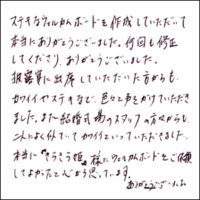 ステキなウェルカムボードを作成していただいて
本当にありがとうございました。何回も修正
してくださり、ありがとうございました。
披露宴に出席していただいた方からも、
カワイイやステキなど、色々と声をかけていただき
ました。また結婚式場のスタッフの方々からも
二人によく似ていてカワイイといっていただきました。
本当に"きらきら姫"様にウェルカムボードをご依頼
してよかったと心から思っています。
ありがとうございました